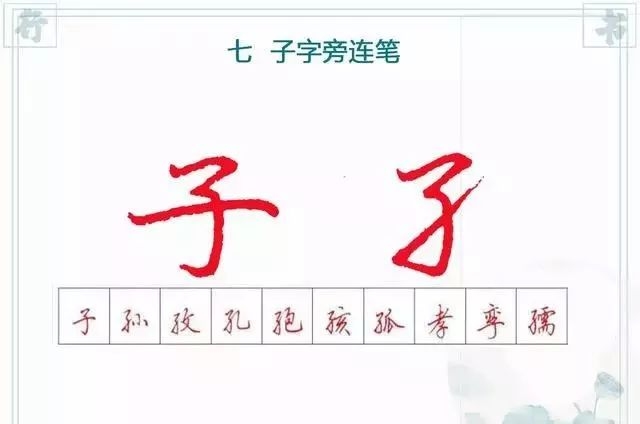 行 书
七 子字旁连笔
子 子
子 孙 孜 孔 孢 孩 孤 孝 孪 孺